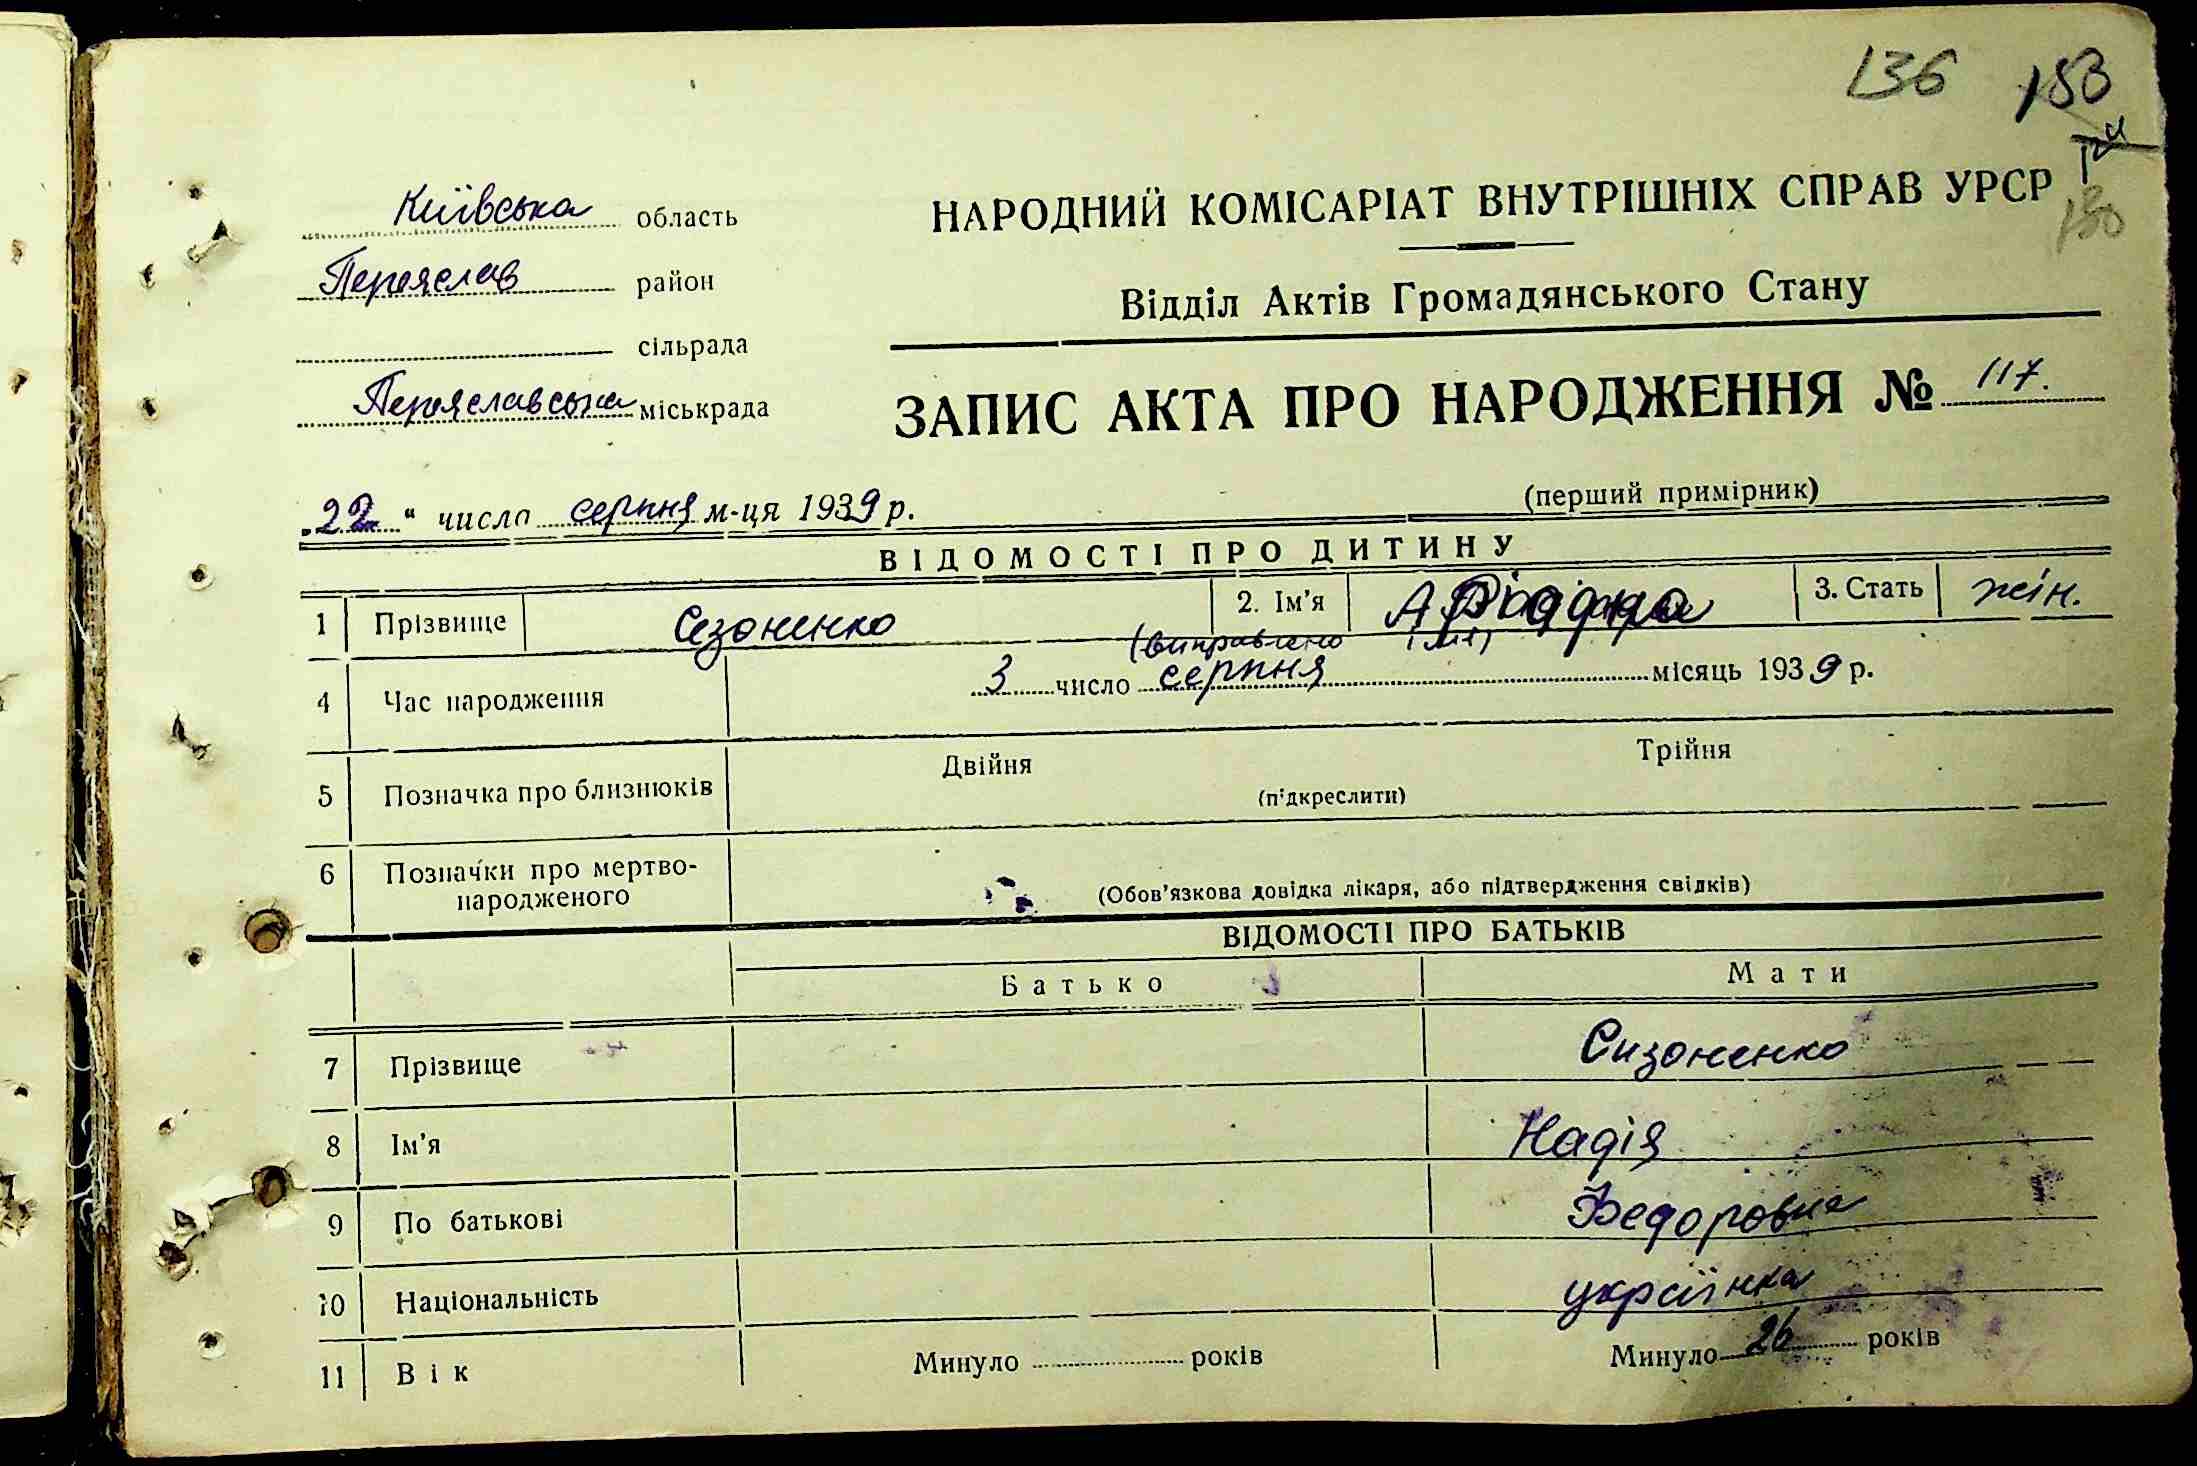 136 153
Київська область
НАРОДНИЙ КОМІСАРІАТ ВНУТРІШНІХ СПРАВ УРСР
130
Переяслав район
Відділ Актів Громадянського Стану
сільрада
Переяславська міськрада
ЗАПИС АКТА ПРО НАРОДЖЕННЯ № 117.
(перший примірник)
„22“ число серпня м-ця 1939 р.
ВІДОМОСТІ ПРО ДИТИНУ
1 Прізвище Сезоненко 2. Ім'я 3. Стать жін.
(виправлено ім'я)
4 Час народження 3 число серпня місяць 1939 р.
5 Позначка про близнюків Двійня Трійня
(підкреслити)
6 Позначки про мертво-
народженого
(Обов'язкова довідка лікаря, або підтвердження свідків)
ВІДОМОСТІ ПРО БАТЬКІВ
Батько Мати
7 Прізвище Сизоненко
8 Ім'я Надія
9 По батькові Федоровна
10 Національність українка
11 Вік Минуло років Минуло 26 років